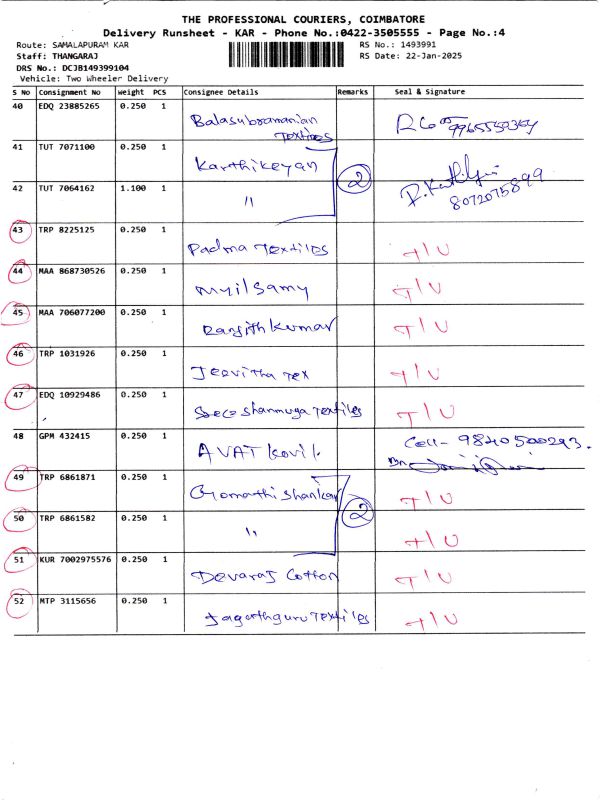 THE PROFESSIONAL COURIERS, COIMBATORE
Delivery Runsheet - KAR - Phone No.:0422-3505555 - Page No.:4
Route: SAMALAPURAM KAR RS No.: 1493991
Staff: THANGARAJ RS Date: 22-Jan-2025
DRS No.: DCJB149399104
Vehicle: Two Wheeler Delivery
S No Consignment No Weight PCS Consignee Details Remarks Seal & Signature
40 EDQ 23885265 0.250 1 Balasubramanian Textiles 9965550364
41 TUT 7071100 0.250 1 Karthikeyan
2
42 TUT 7064162 1.100 1 " 8072075899
43 TRP 8225125 0.250 1 Padma Textiles T/U
44 MAA 868730526 0.250 1 Myilsamy T/U
45 MAA 706077200 0.250 1 Ranjith kumar T/U
46 TRP 1031926 0.250 1 Jeevitha Tex T/U
47 EDQ 10929486 0.250 1 Sree Shanmuga Textiles T/U
48 GPM 432415 0.250 1 AVAT Kovil Cell- 9840500293.
49 TRP 6861871 0.250 1 Gomathi Shankar T/U
2
50 TRP 6861582 0.250 1 " T/U
51 KUR 7002975576 0.250 1 Devaraj Cotton T/U
52 MTP 3115656 0.250 1 Jagathguru Textiles T/U